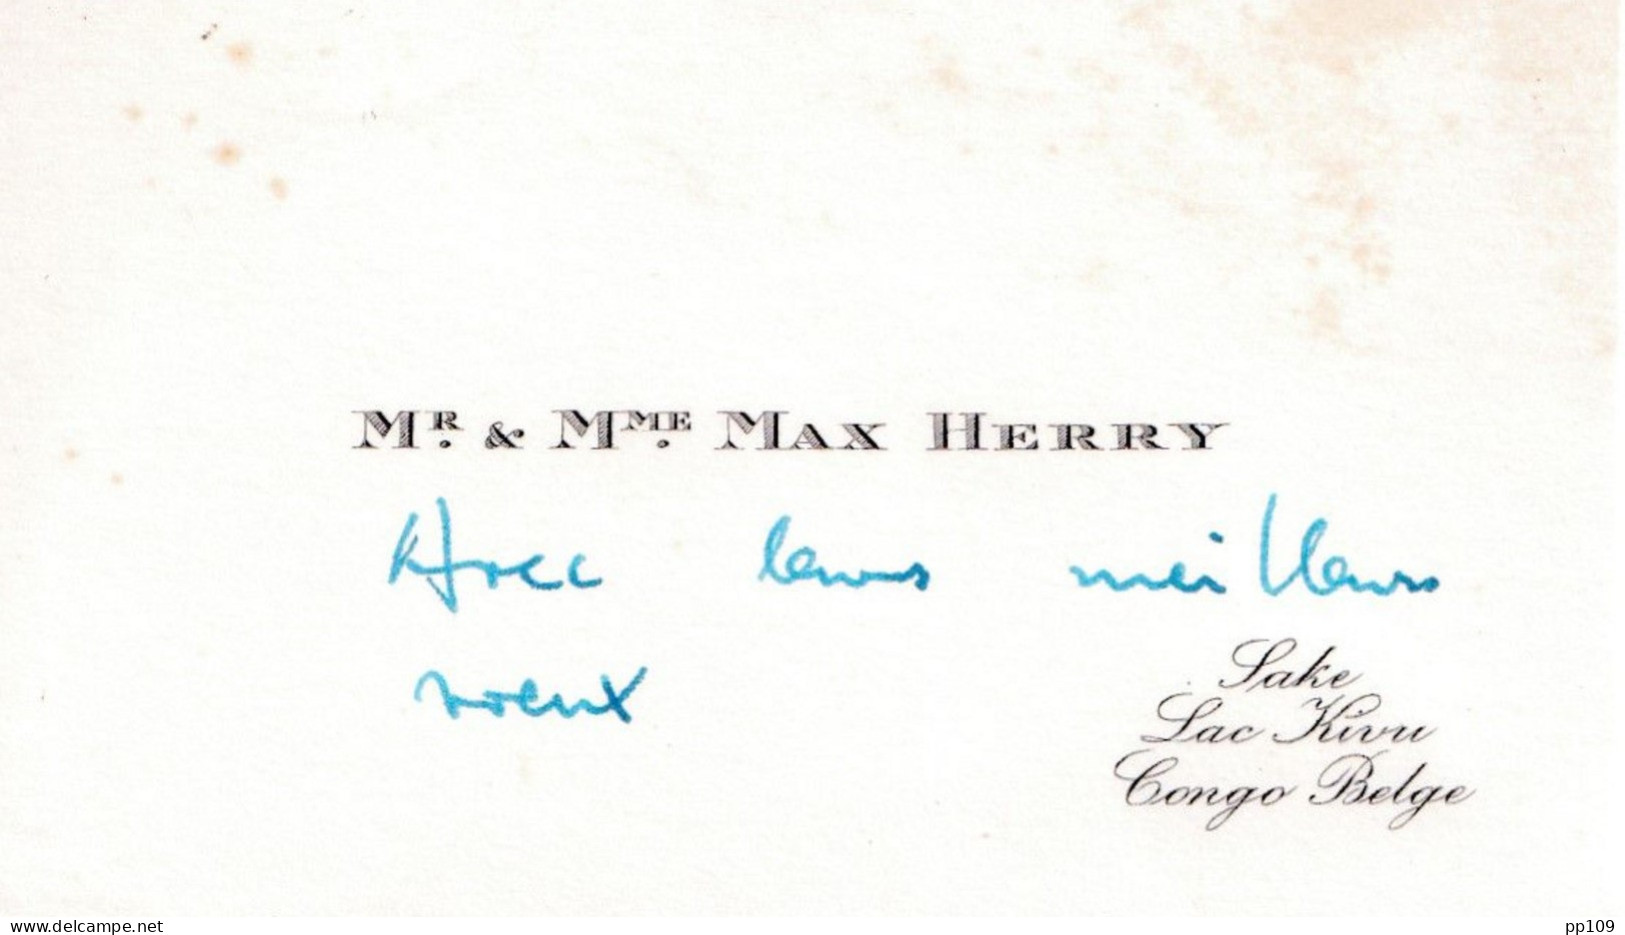 Mr. & Mme. Max Herry
Avec leurs meilleurs
vœux
Sake
Lac Kivu
Congo Belge
www.delcampe.net
pp109